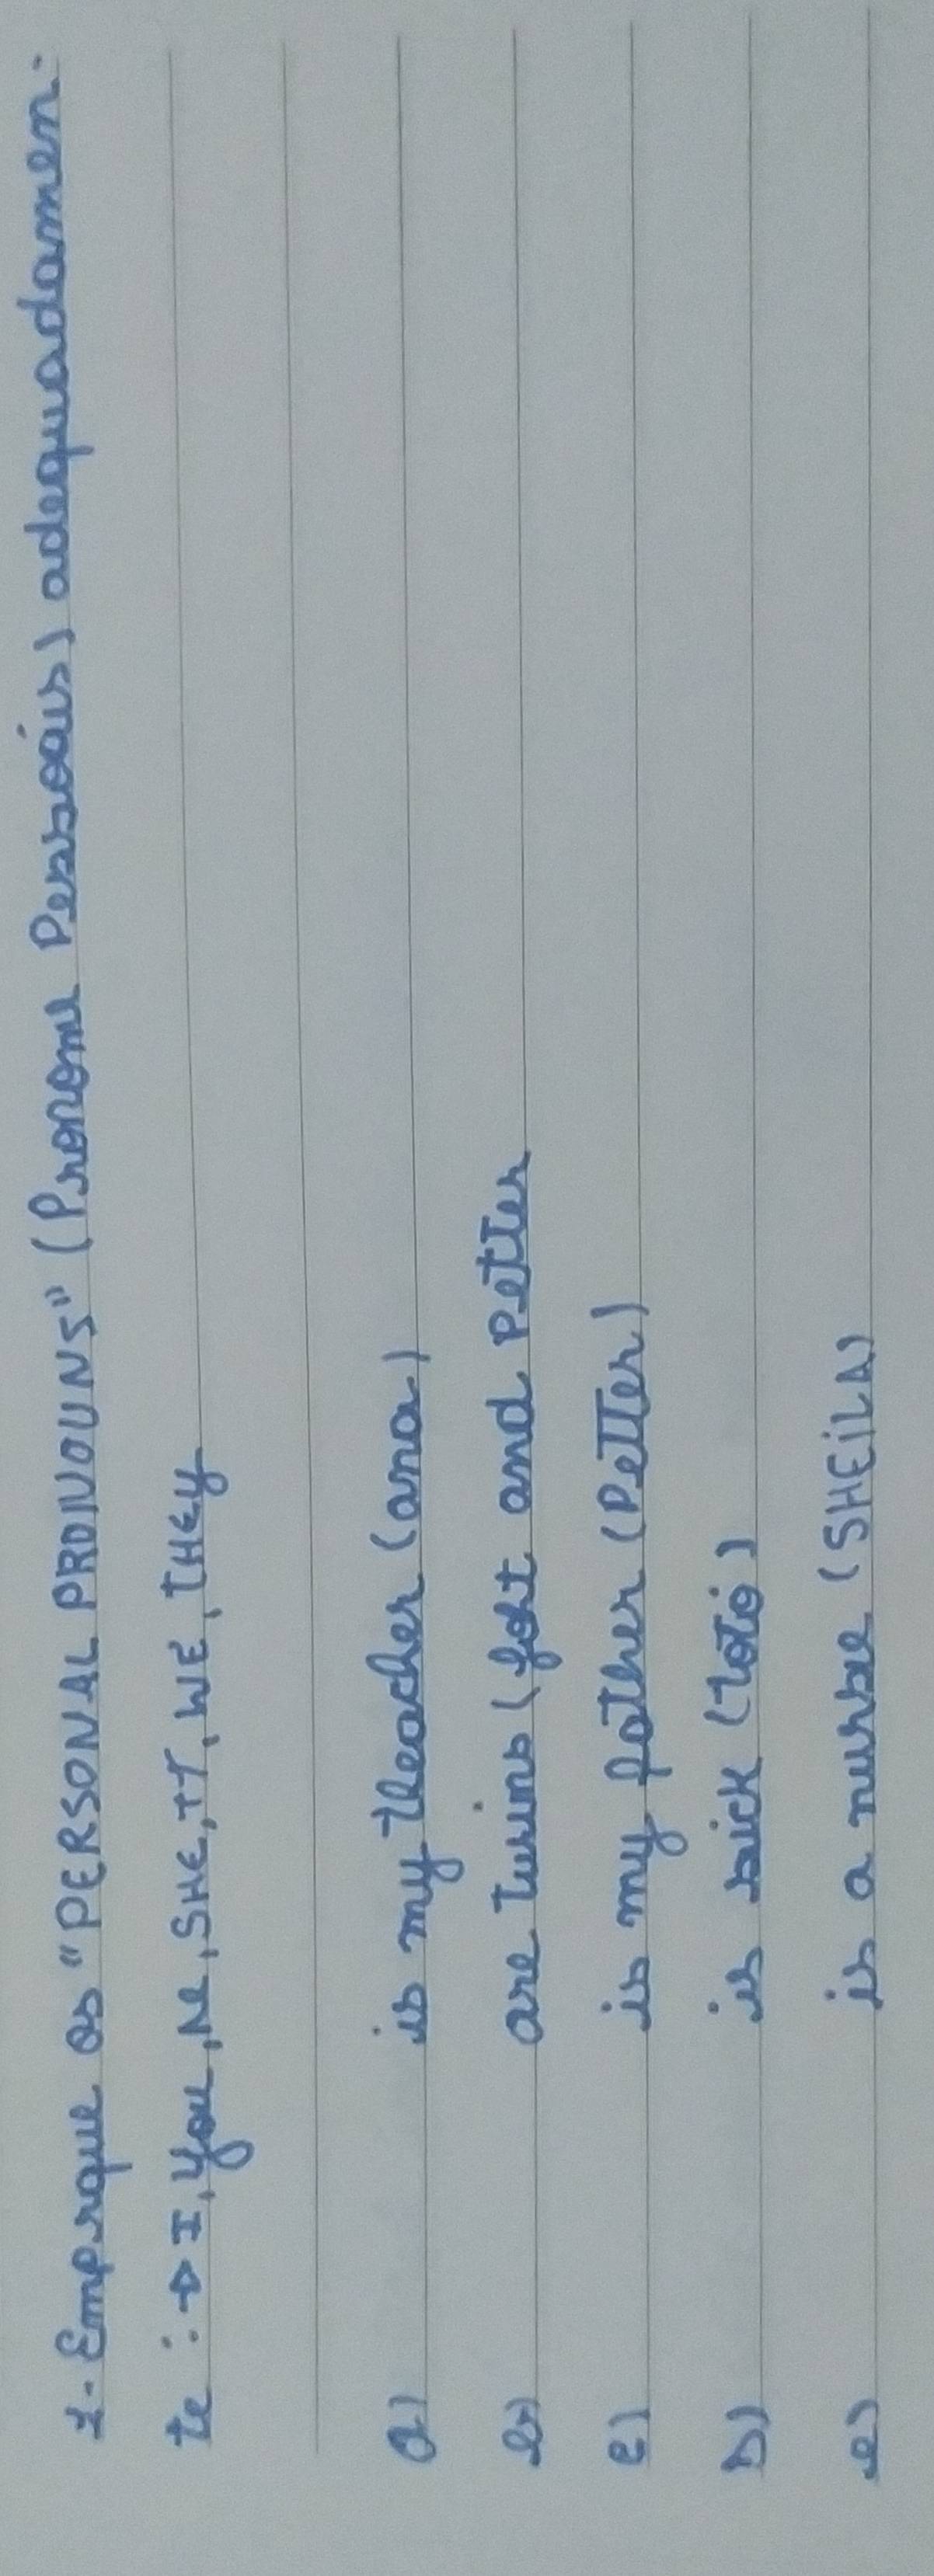 1- Emprque os "PERSONAL PRONOUNS" (Pronom Pessoais) adequadamen-
te : → I, you, he, SHE, IT, WE, THEY
a) is my teacher (ana)
b) are twins (fort and Petter
c) is my father (Petter)
D) is sick (Totó)
e) is a nurse (SHEILA)